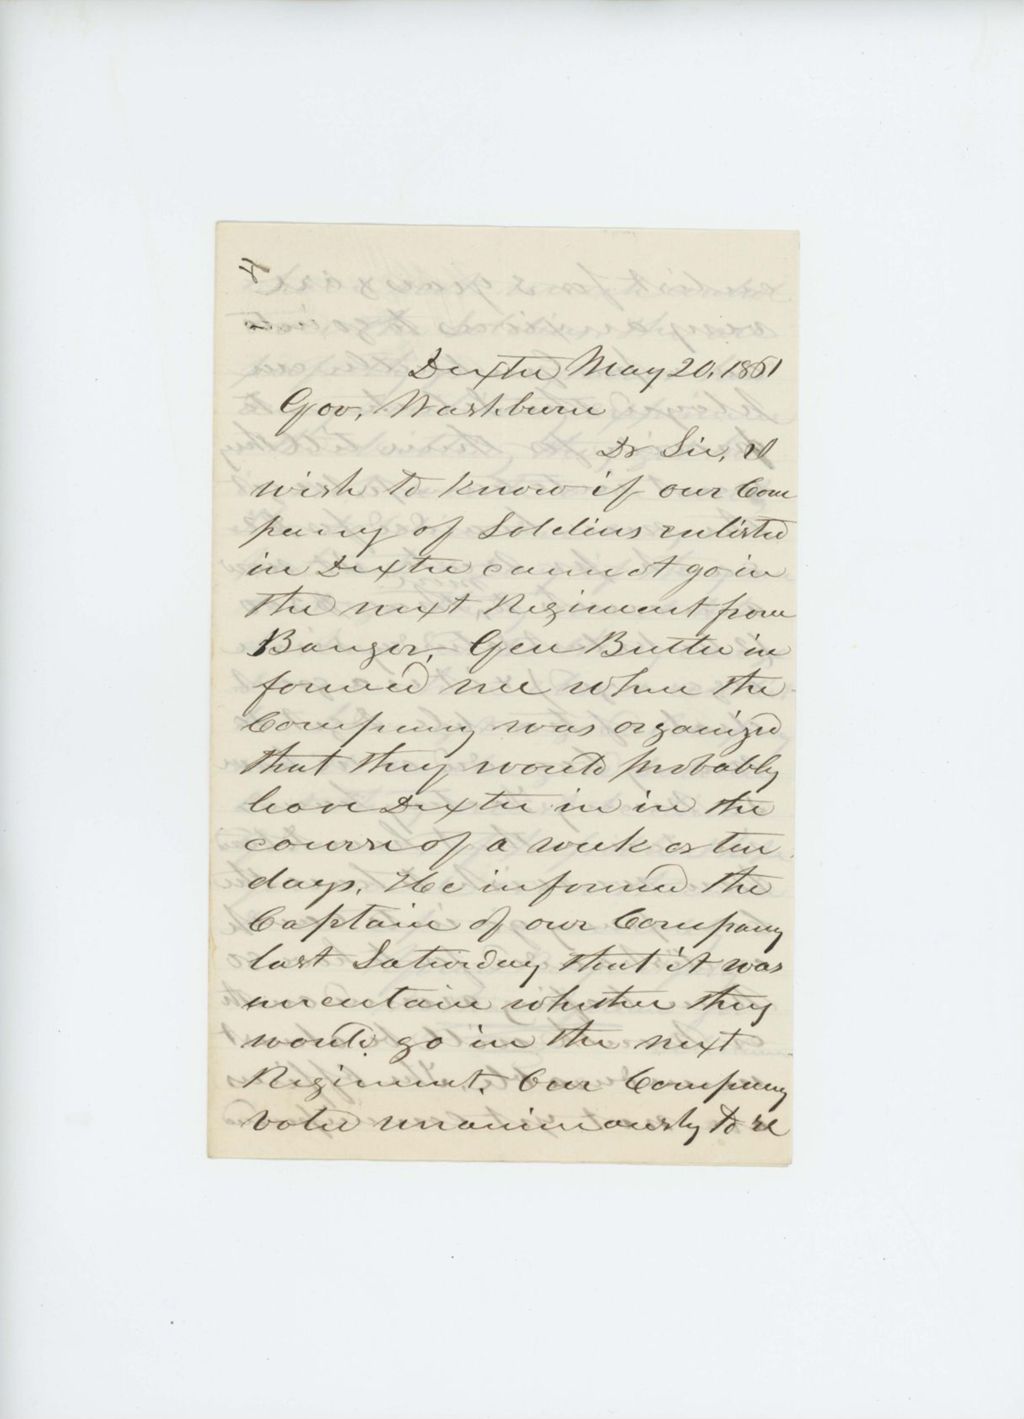 Dexter May 20, 1861
Gov. Washburn
Dr Sir, I
wish to know if our Com
pany of Soldiers enlisted
in Dexter cannot go in
the next Regiment from
Bangor, Gen Butler in
formed me when the
Company was organized
that they would probably
leave Dexter in in the
course of a week or ten
days. He informed the
Captain of our Company
last Saturday that it was
uncertain whether they
would go in the next
Regiment. Our Company
voted unanimously to re